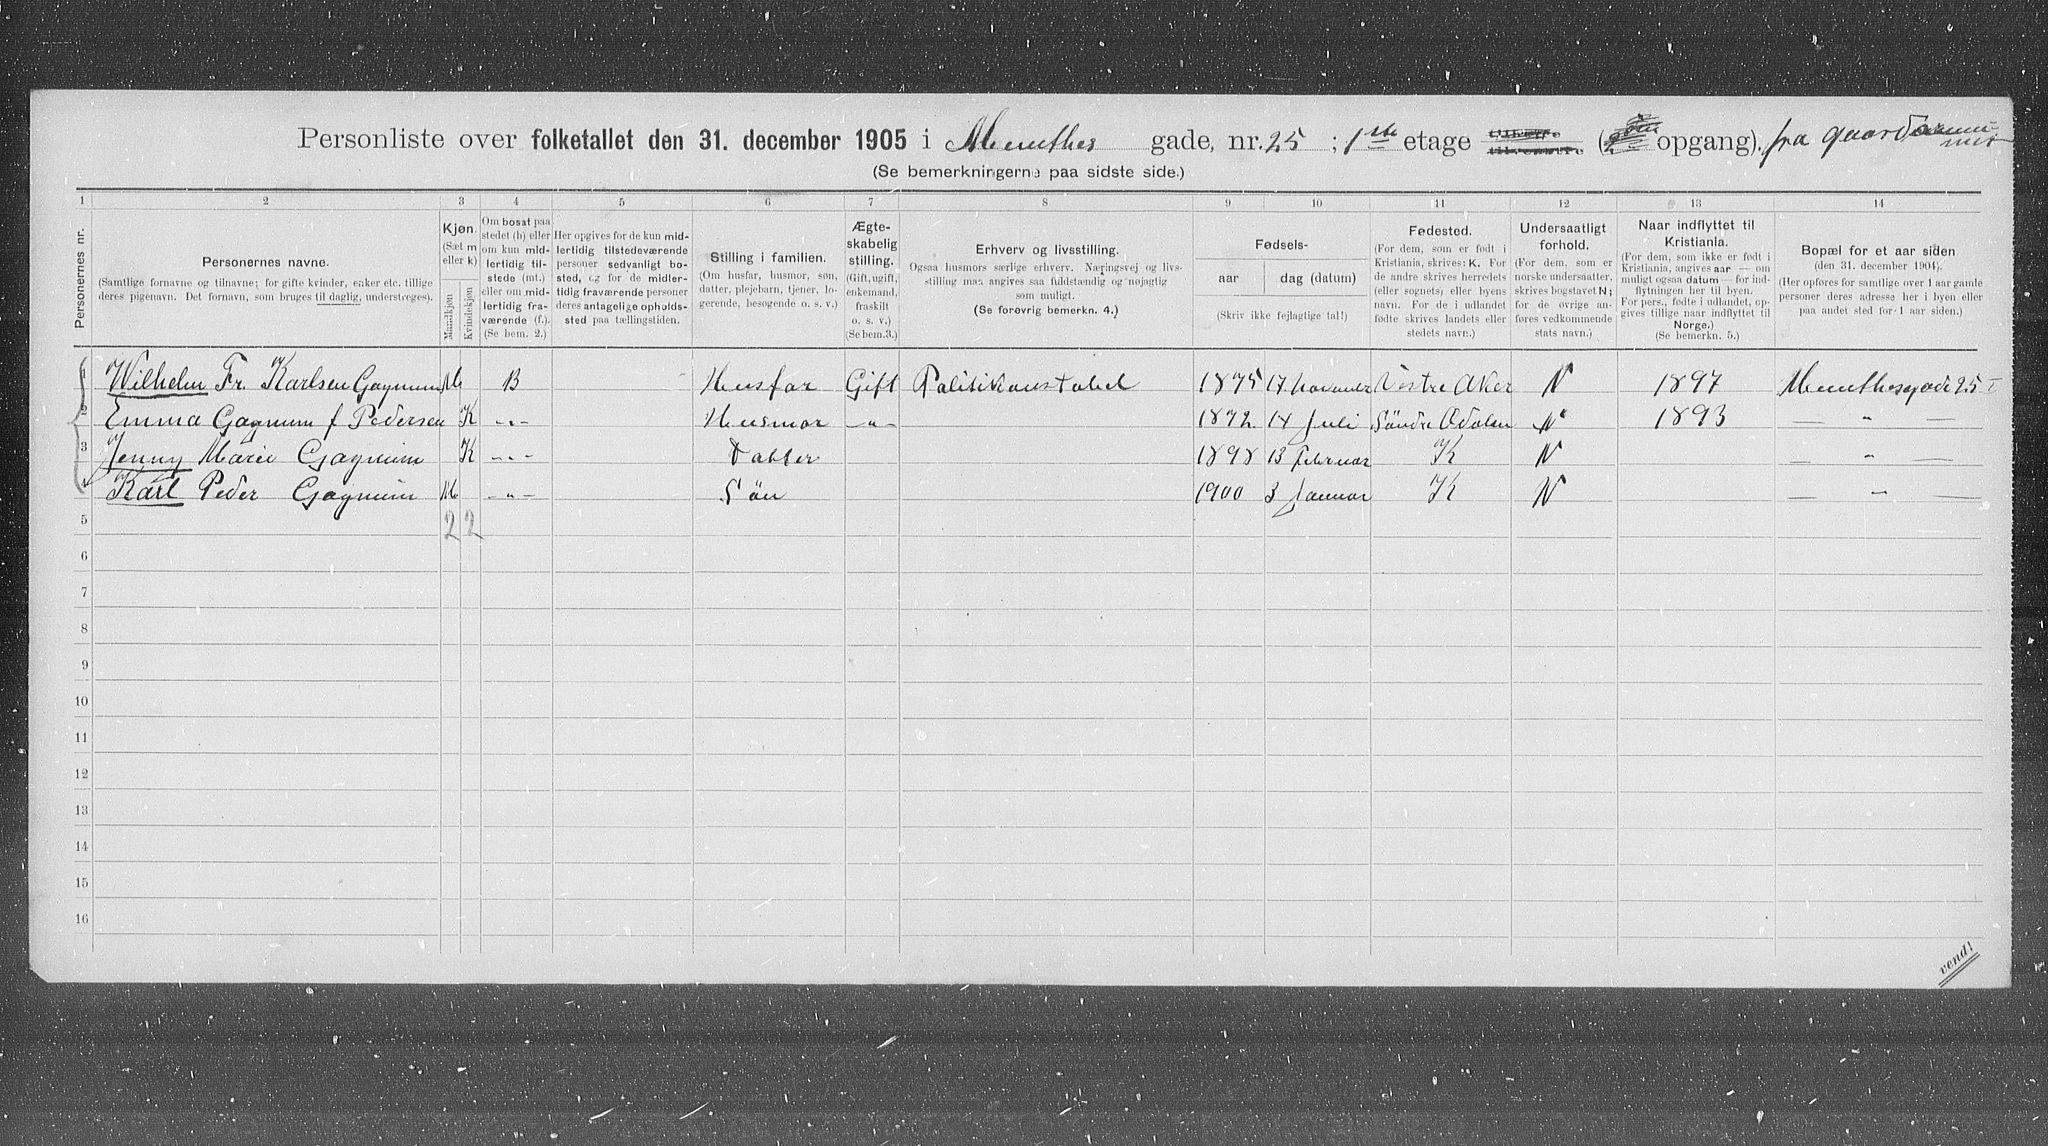 Personliste over folketallet den 31. december 1905 i Munthes gade, nr. 25 ; 1ste etage (opgang). fra gaardsrummet
(Se bemerkningerne paa sidste side.)
1 2 3 4 5 6 7 8 9 10 11 12 13 14
Personernes nr.
Personernes navne.
(Samtlige fornavne og tilnavne; for gifte kvinder, enker etc. tillige
deres pigenavn. Det fornavn, som bruges til daglig, understreges).
Kjøn.
(Sæt m
eller k)
Mandkjøn
Kvindekjøn
Om bosat paa
stedet (b) eller
om kun mid-
lertidig til-
stede (mt.)
eller om mid-
lertidig fra-
værende (f.).
(Se bem. 2.)
Her opgives for de kun mid-
lertidig tilstedeværende
personer sedvanligt bo-
sted, og for de midler-
tidig fraværende personer
deres antagelige opholds-
sted paa tællingstiden.
Stilling i familien.
(Om husfar, husmor, søn,
datter, plejebarn, tjener, lo-
gerende, besøgende o. s. v.)
Ægte-
skabelig
stilling.
(Gift, ugift,
enkemand,
fraskilt
o. s. v.)
(Se bem. 3.)
Erhverv og livsstilling.
Ogsaa husmors særlige erhverv. Næringsvej og livs-
stilling maa angives saa fuldstændig og nøjagtig
som muligt.
(Se forøvrig bemerkn. 4.)
Fødsels-
aar dag (datum)
(Skriv ikke fejlagtige tal!)
Fødested.
(For dem, som er født i
Kristiania, skrives: K. For
de andre skrives herredets
(eller sognets) eller byens
navn. For de i udlandet
fødte skrives landets eller
stedets navn.)
Undersaatligt
forhold.
(For dem, som er
norske undersaatter,
skrives bogstavet N;
for de øvrige an-
føres vedkommende
stats navn.)
Naar indflyttet til
Kristiania.
(For dem, som ikke er født i
Kristiania, angives aar — om
muligt ogsaa datum — for ind-
flytningen her til byen.
For pers., fødte i udlandet, op-
gives tillige naar indflyttet til
Norge.)
(Se bemerkn. 5.)
Bopæl for et aar siden
(den 31. december 1904).
(Her opføres for samtlige over 1 aar gamle
personer deres adresse her i byen eller
paa andet sted for 1 aar siden.)
1 Wilhelm Fr. Karlsen Gagnum M B Husfar Gift Politikonstabel 1875 17 November Vestre Aker N 1897 Munthesgade 25 I
2 Emma Gagnum f Pedersen K -"- Husmor -"- 1872 14 Juli Søndre Odalen N 1893 — " —
3 Jenny Marie Gagnum K -"- Datter 1898 13 Februar K N — " —
4 Karl Peder Gagnum M -"- Søn 1900 3 Januar K N — " —
5 2 2
6
7
8
9
10
11
12
13
14
15
16
vend!